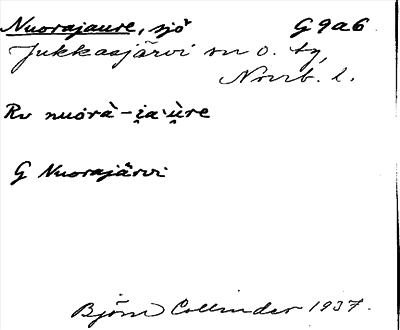 Nuorajaure, sjö G9a6
Jukkasjärvi sn o. tg,
Norrb. l.
Rv nuòrà-i̯a· ù̯re
G Nuorajärvi
Björn Collinder 1937.